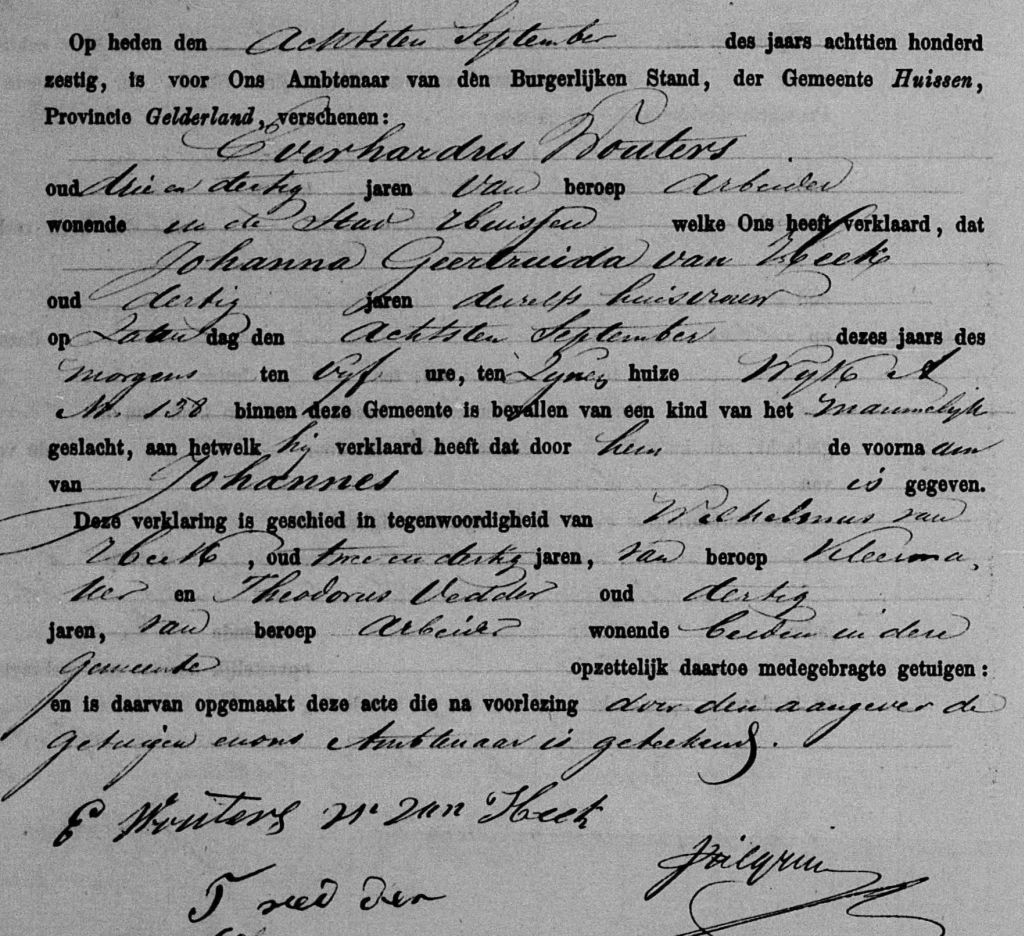 Op heden den Achtsten September des jaars achttien honderd
zestig, is voor Ons Ambtenaar van den Burgerlijken Stand, der Gemeente Huissen,
Provincie Gelderland, verschenen:
Everhardus Wouters
oud drie en dertig jaren van beroep Arbeider
wonende in de Stad Huissen welke Ons heeft verklaard, dat
Johanna Geertruida van Heek
oud dertig jaren deszelfs huisvrouw
op Zatur dag den Achtsten September dezes jaars des
morgens ten vyf ure, ten Zynen huize Wyk A
No. 158 binnen deze Gemeente is bevallen van een kind van het mannelyk
geslacht, aan hetwelk hij verklaard heeft dat door hem de voorna am
van Johannes is gegeven.
Deze verklaring is geschied in tegenwoordigheid van Wilhelmus van
Heek, oud twee en dertig jaren, van beroep Kleerma,
ker en Theodorus Vedder oud dertig
jaren, van beroep Arbeider wonende beiden in deze
Gemeente opzettelijk daartoe medegebragte getuigen:
en is daarvan opgemaakt deze acte die na voorlezing door den aangever de
getuigen en ons Ambtenaar is geteekend.
E Wouters W van Heek
Pilgrim
T ved der